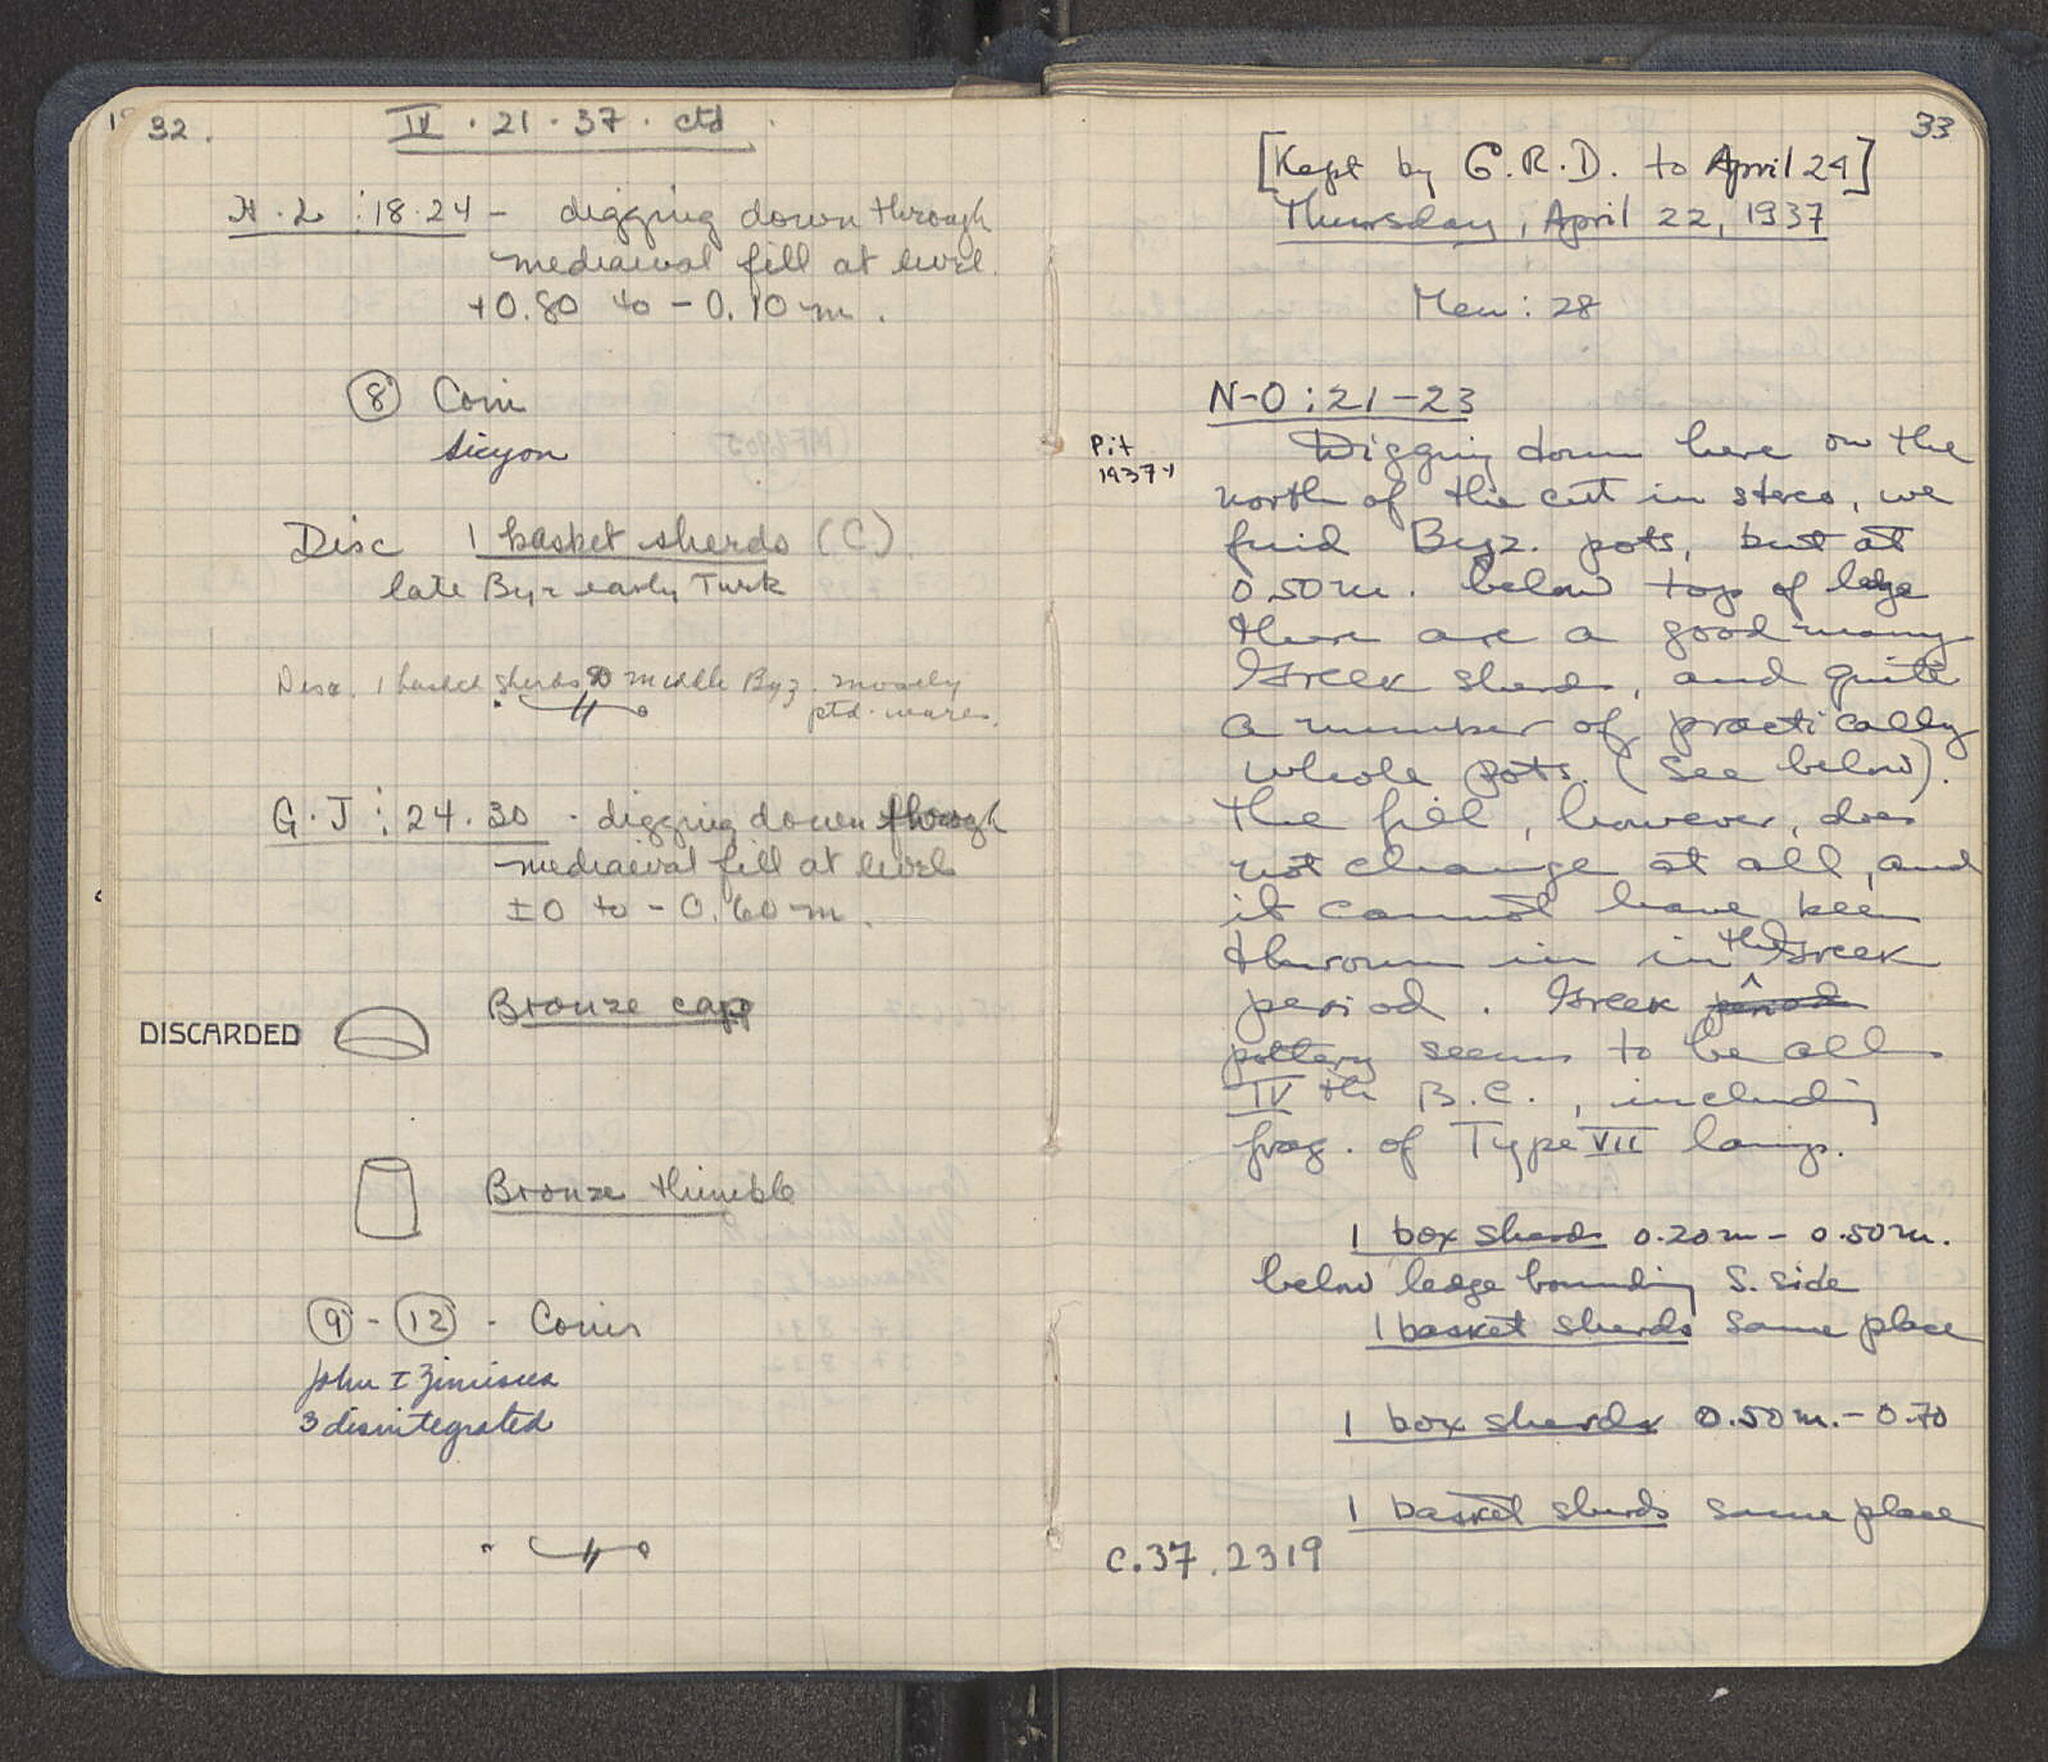 32.
IV · 21 · 37 · ctd
H · L : 18 · 24 - digging down through
mediaeval fill at level
+0.80 to - 0.10 m.
8 Coin
Sicyon
Disc 1 basket sherds (C)
late Byz early Turk
Disc. 1 basket sherds middle Byz. mostly
ptd. wares.
G · J : 24 · 30 · digging down through
mediaeval fill at level
±0 to - 0.60 m.
Bronze cap
DISCARDED
Bronze thimble
9 - 12 - Coins
John I Zimisces
3 disintegrated
33
[Kept by G.R.D. to April 24]
Thursday, April 22, 1937
Men : 28
N-O : 21-23
Pit
1937-1
Digging down here on the
north of the cut in stereo, we
find Byz. pots, but at
0.50 m. below top of ledge
there are a good many
Greek sherds, and quite
a number of practically
whole pots. (See below).
The fill, however, does
not change at all, and
it cannot have been
thrown in in the Greek
period. Greek period
pottery seems to be all
IV th B.C., including
frag. of Type VII lamp.
1 box sherds 0.20 m - 0.50 m.
below ledge bounding S. side
1 basket sherds same place
1 box sherds 0.50 m. - 0.70
1 basket sherds same place
C.37.2319